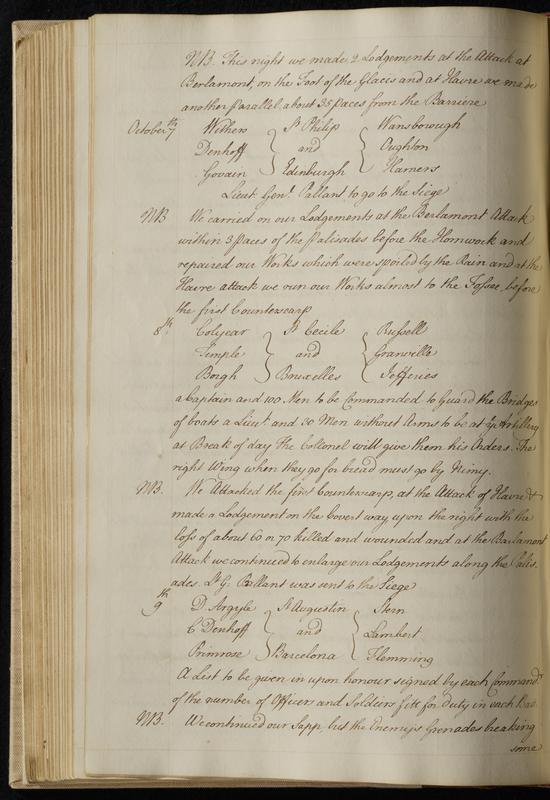 NB. This night we made 2 Lodgements at the Attack at
Berlamont, on the Foot of the Glacis and at Havre we made
another Parallel about 35 paces from the Barriere
October 7th Withers St Philip Wansborough
Denhoff and Oughton
Govain Edinburgh Harners
Lieut Genl. Pallant to go to the Siege
NB We carried on our Lodgements at the Berlamont Attack
within 3 paces of the Palisades before the Hornwork and
repaired our Works which were spoiled by the Rain and at the
Havre attack we run our Works almost to the Fossee before
the first Counterscarp
8th. Colyear St Cecile Russell
Temple and Granville
Borgh Bruxelles Jefferies
a Captain and 100 Men to be Commanded to Guard the Bridges
of boats a Lieut. and 30 Men without Arms to be at ye Artillery
at Break of day The Collonel will give them his Orders. The
right Wing when they go for bread must go by Nimy.
NB. We Attacked the first Counterscarp, at the Attack of Havre &
made a Lodgement on the Covert way upon the right with the
loss of about 60 or 70 killed and wounded and at the Barlamont
Attack we continued to enlarge our Lodgements along the Palis
ades. Lt G. Pallant was sent to the Siege
9th D. Argyle St Augustin Stern
C Denhoff and Lambert
Primrose Barcelona Flemming
A List to be given in upon honour signed by each Commandr
of the number of Officers and Soldiers fitt for Duty in each Bat.
NB. We continued our Sapp but the Enemys Grenades breaking
some